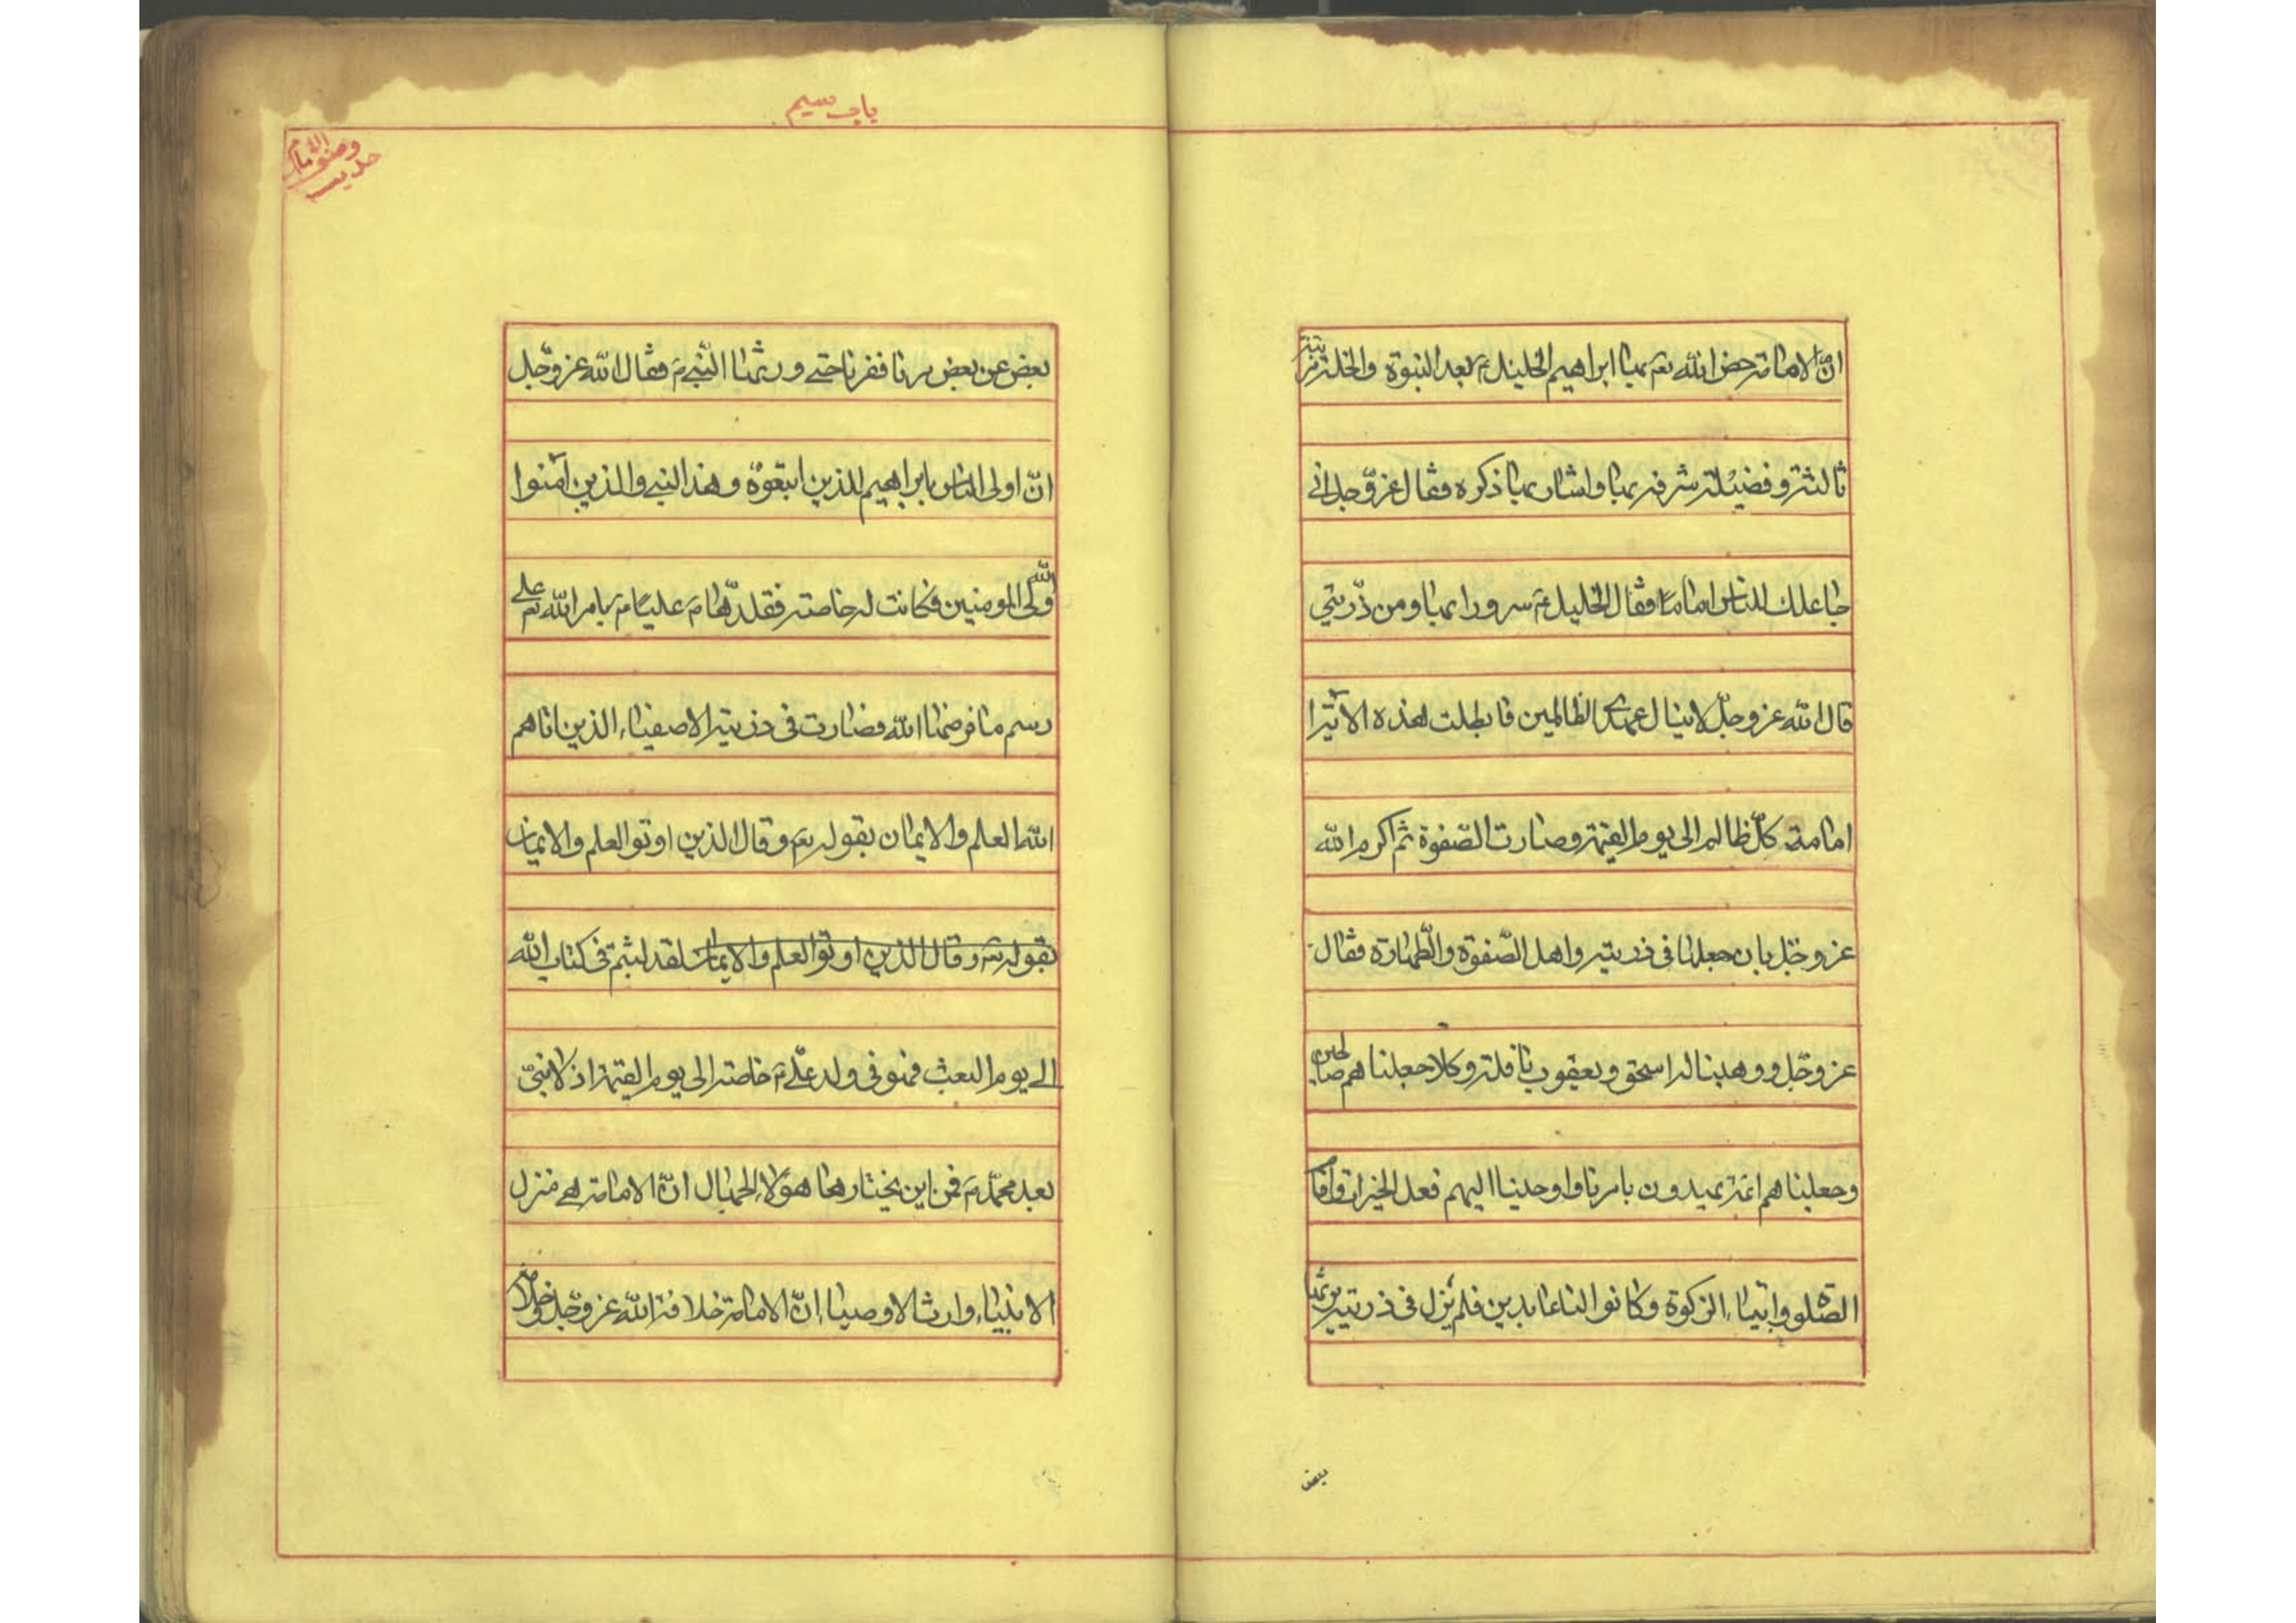 انّ الامامة خصّ الله تع بها ابراهيم الخليل ع بعد النبوة والخلة مرتبة
ثالثة وفضيلة شرفه بها واشار بها ذكره فقال عزّ وجل انى
جاعلك للناس اماما فقال الخليل ع سرورا بها ومن ذرّيتي
قال الله عز وجلّ لا ينال عهدى الظالمين فابطلت هذه الآية ا
امامة كلّ ظالم الى يوم القيمة وصارت الصّفوة ثم اكرم الله
عز وجل بان جعلها فى ذريته واهل الصّفوة والطّهارة فقال
عز وجّل ووهبنا له اسحق ويعقوب نافلة وكلا جعلنا هم صالحين
وجعلنا هم ائمة يهدون بامرنا واوحينا اليهم فعل الخيرات واقام
الصّلوة وايتاء الزكوة وكانوا لنا عابدين فلم تزل فى ذريته يرثها
بعض
باب سيم
حديث
بعض عن بعض قرنا فقرنا حتى ورثها النّبى ص فقال الله عز وجّل
انّ اولى الناس بابراهيم للذين اتبعوه وهذا النبى والذين آمنوا
والله ولى المومنين فكانت له خاصة فقلدّها ص عليا ع بامر الله تع على
رسم ما فرضها الله فصارت فى ذريته الاصفياء الذين اتاهم
الله العلم والايمان بقوله تع وقال الذين اوتوا العلم والايمان
بقوله تع وقال الذين اوتوا العلم والايمان لقد لبثتم فى كتاب الله
الى يوم البعث فهو فى ولد علّى ع خاصة الى يوم القيمة اذ لا نبىّ
بعد محمّد ص فمن اين يختار ها هؤلاء الجهال انّ الامامة هى منزلة
الانبياء وارث الاوصياء انّ الامامة خلافة الله عز وجّل وخلافة